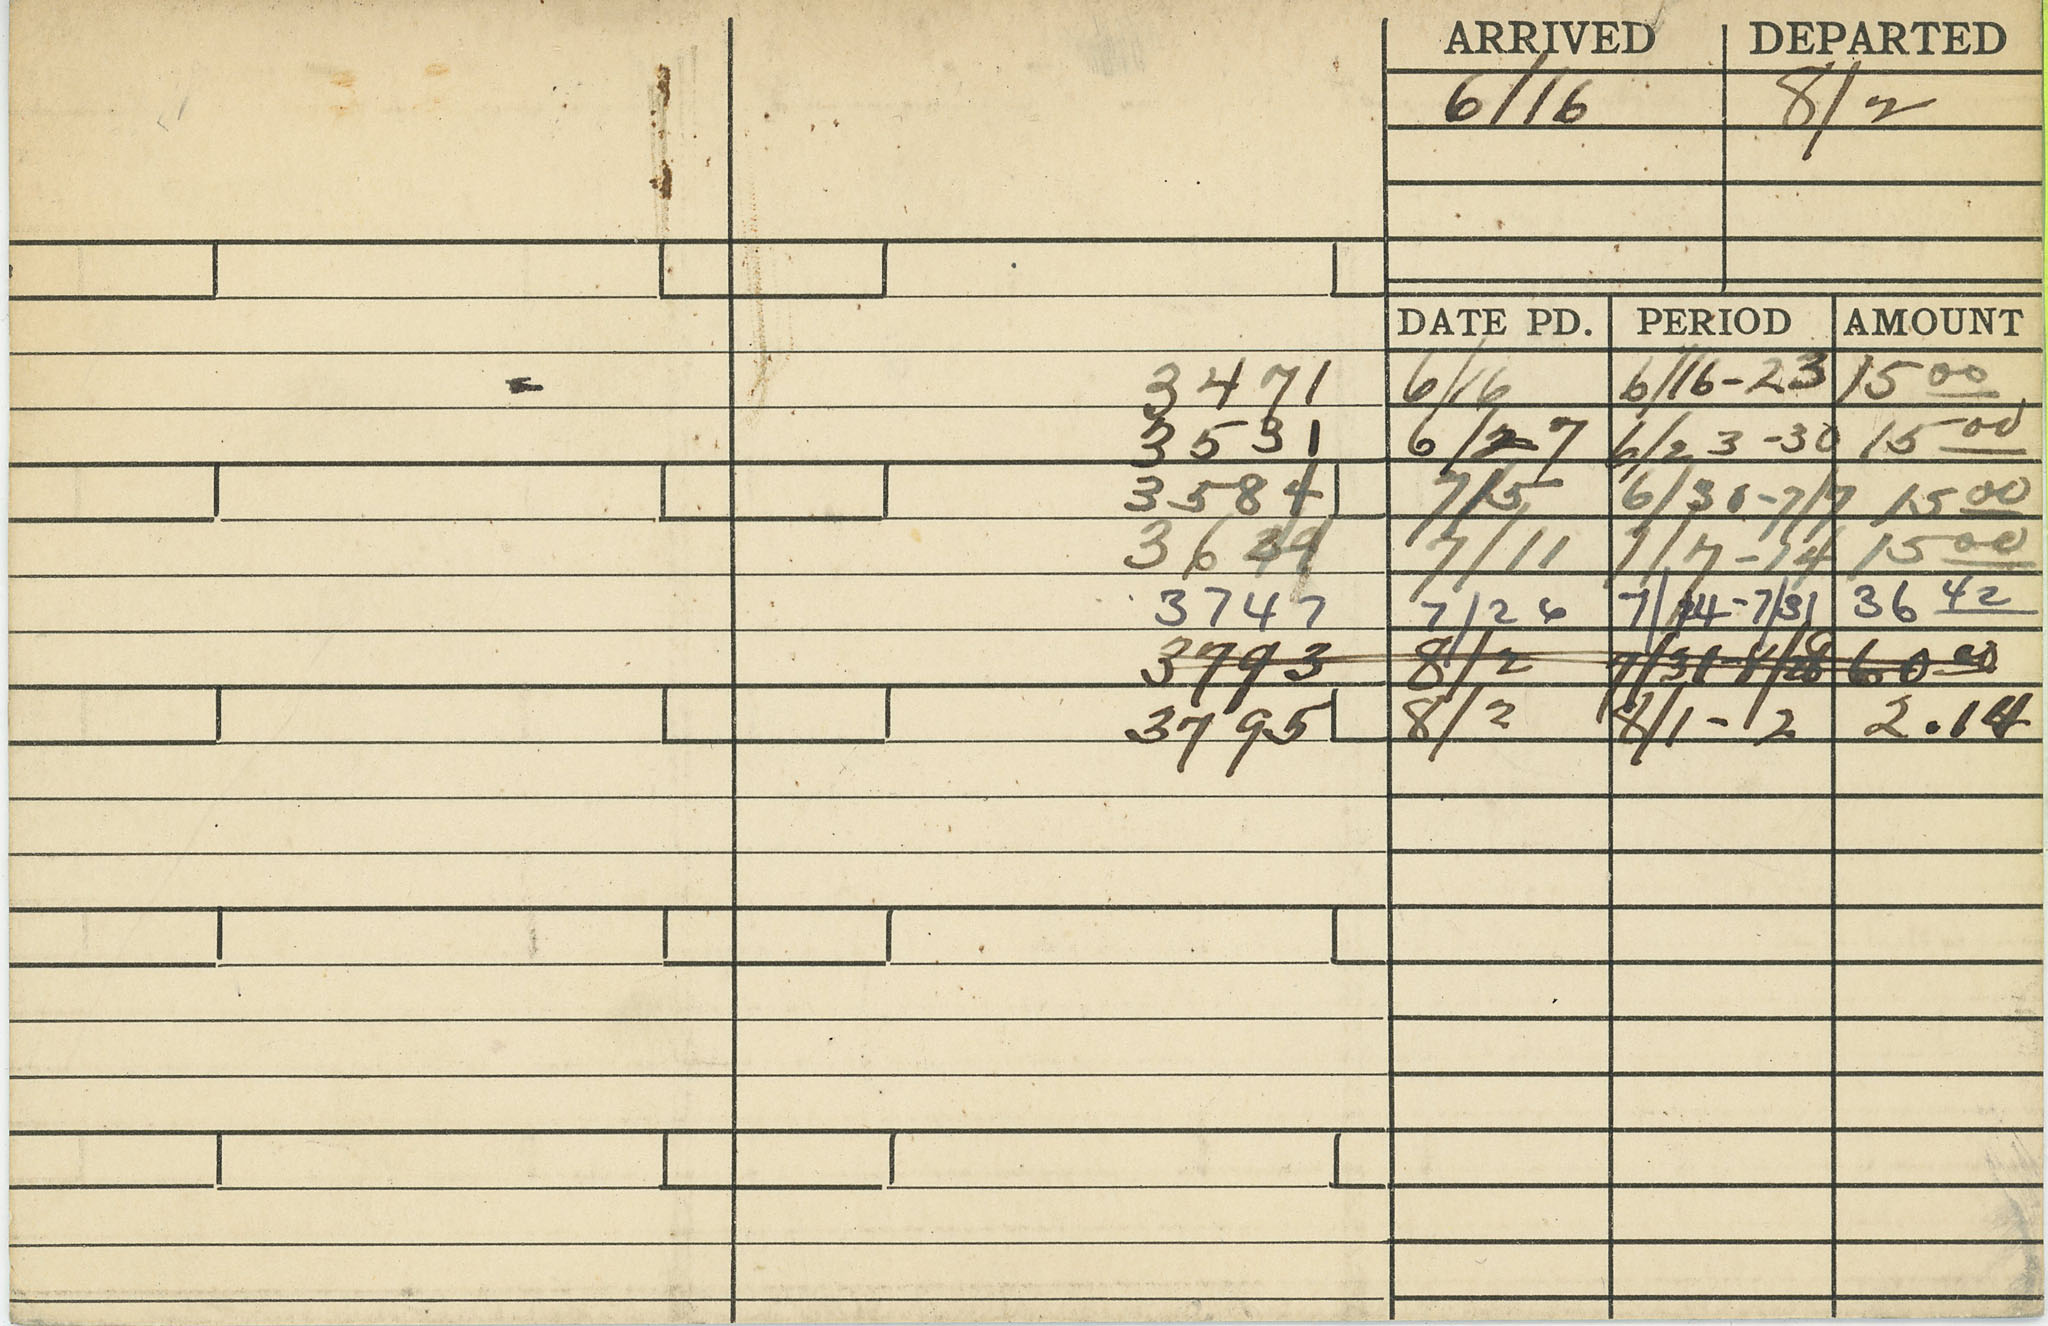 ARRIVED DEPARTED
6/16 8/2
DATE PD. PERIOD AMOUNT
3471 6/16 6/16-23 15 00
3531 6/27 6/23-30 15 00
3584 7/5 6/30-7/7 15 00
7/11 7/7-14 15 00
3747 7/26 7/14-7/31 36 42
3793 8/2 7/31-8/28 60 00
3795 8/2 8/1-2 2.14